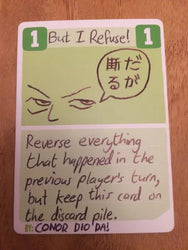 1 But I Refuse! 1
だが
断る
Reverse everything
that happened in the
previous player's turn,
but keep this card on
the discard pile.
BY: CONOR DIO'DA!